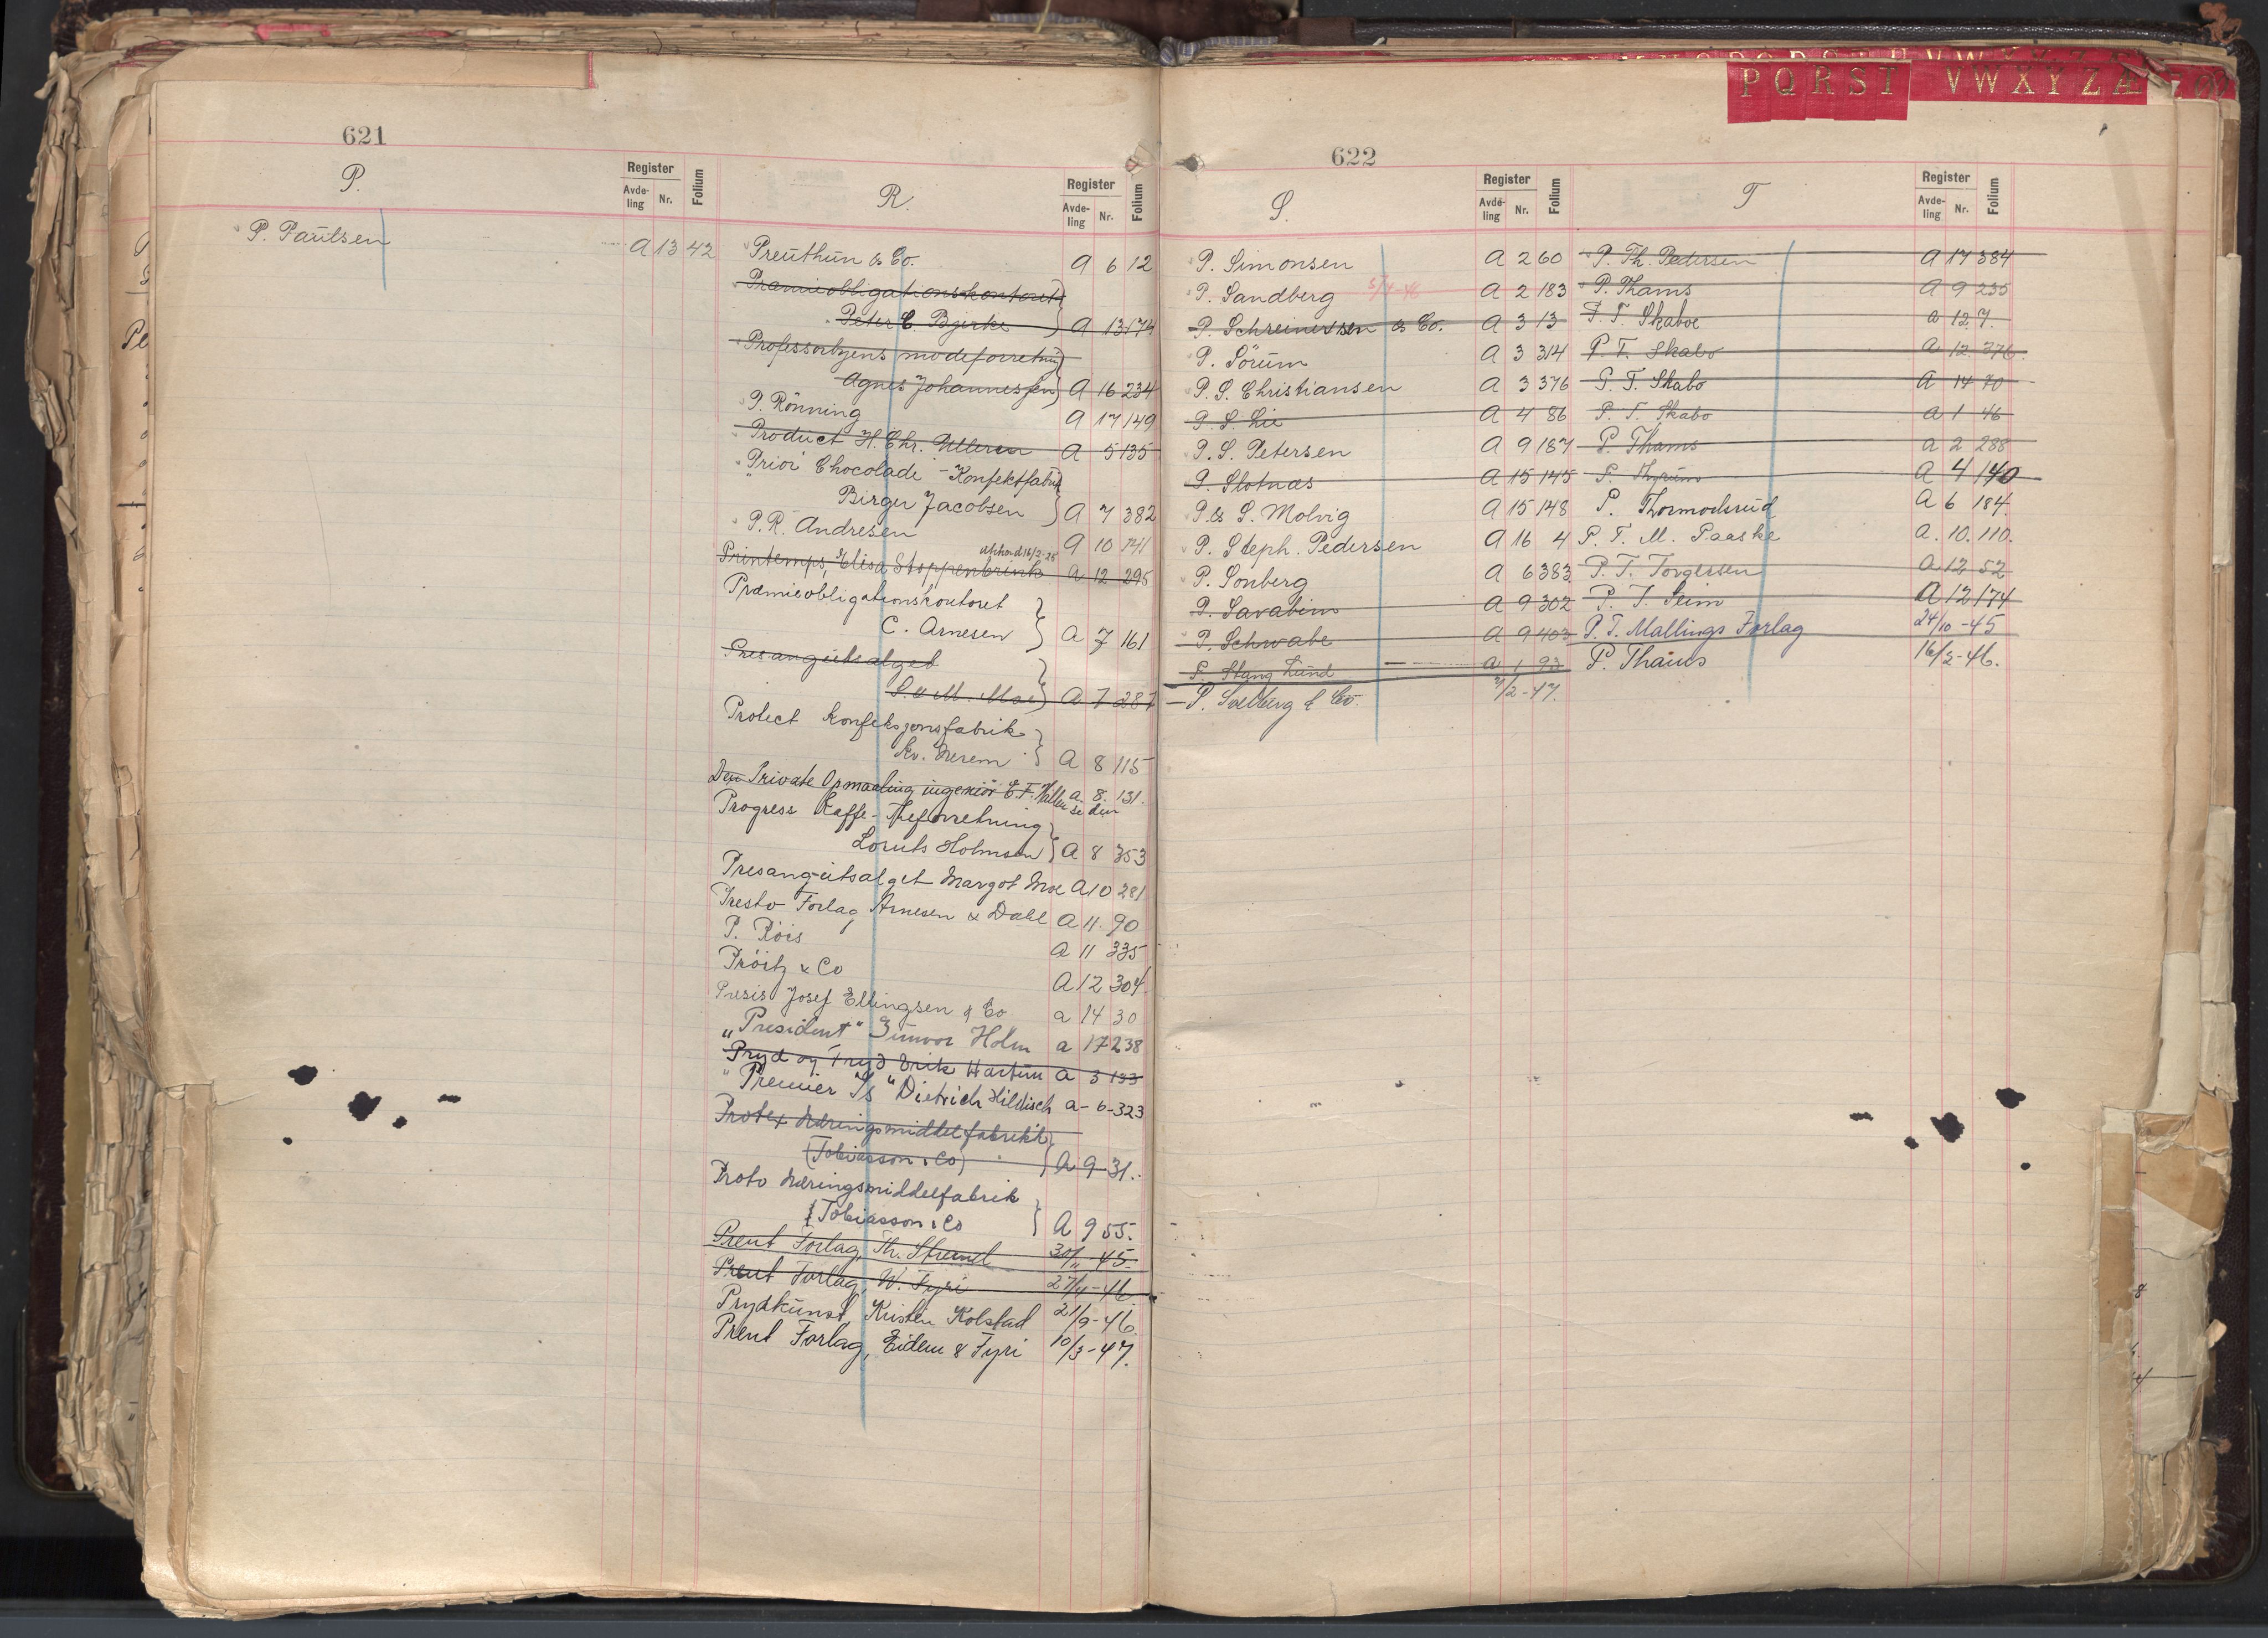 PQRST VWXYZÆ
621
P.
Register
Avde-
ling
Nr.
Folium
P. Paulsen A 13 42
R.
Register
Avde-
ling
Nr.
Folium
Preuthun & Co. A 6 12
Præmieobligationskontoret
Peter C Bjerke A 13 174
Professorbyens modeforretning
Agnes Johannessen A 16 234
P. Rönning A 17 149
Product H. Chr. Ulleren A 5 135
"Prior" Chocolade - Konfektfabrik
Birger Jacobsen A 7 382
P. R. Andresen A 10 141
Printemps, Elisa Stoppenbrink A 12 295
Præmieobligationskontoret
C. Arnesen A 7 161
Presangutsalget
S. & M. Moe A 7 287
Protect Konfeksjonsfabrik
A 8 115
Den Private Opmaaling ingeniör E. F. a. 8. 131.
Progress Kaffe- Theforretning
Loruts Holmsen A 8 353
Presangutsalget Margot Moe A 10 281
Presto Forlag Arnesen & Dahl A 11. 90
P. Röis A 11 335
Pröitz & Co A 12 304
Presis Josef Ellingsen & Co a 14 30
"President" Gunvor Holm a 17 238
Pryd og Fryd Erik Hartun a 3 133
"Premier Is" Dietrich Hildisch a - 6 - 323
Protex Næringsmiddelfabrikk
(Tobiasson & Co) A 9 31.
Proto Næringsmiddelfabrik
(Tobiasson & Co A 9 55.
Prent Forlag, Th. Strand 30/11 - 45.
Prent Forlag, W. Fyri 27/4 - 46
Prydkunst, Kristen Kolstad 21/9 - 46.
Prent Forlag, Eidem & Fyri 10/3 - 47.
622
S.
Register
Avde-
ling
Nr.
Folium
P. Simonsen A 2 60
P. Sandberg A 2 183
P. Schreinessen & Co. A 3 13
P. Sörum A 3 314
P. S. Christiansen A 3 376
P. S. Lie A 4 86
P. S. Petersen A 9 187
P. Slotnæs A 15 145
P. & S. Molvig A 15 148
P. Steph. Pedersen A 16 4
P. Sonberg A 6 383
P. Savabini A 9 302
P. Schwabe A 9 403
P. Stang Lund A 1 92
P. Solberg & Co. 7/2 - 47.
T
Register
Avde-
ling
Nr.
Folium
P. Th. Pedersen A 17 384
P. Thams A 9 235
P. T. Skaboe a 12 7.
P. T. Skabo a 12 376.
P. T. Skabo A 14 70
P. T. Skabo a 1 46
P. Thams a 2 288
P. Thyrum A 4 140
P. Thormodsrud A 6 184.
P. T. M. Paaske a. 10. 110.
P. T. Torgersen a 12 52
P. T. Seim A 12 174
P. T. Mallings Forlag 24/10 - 45
P. Thams 16/2 - 46.